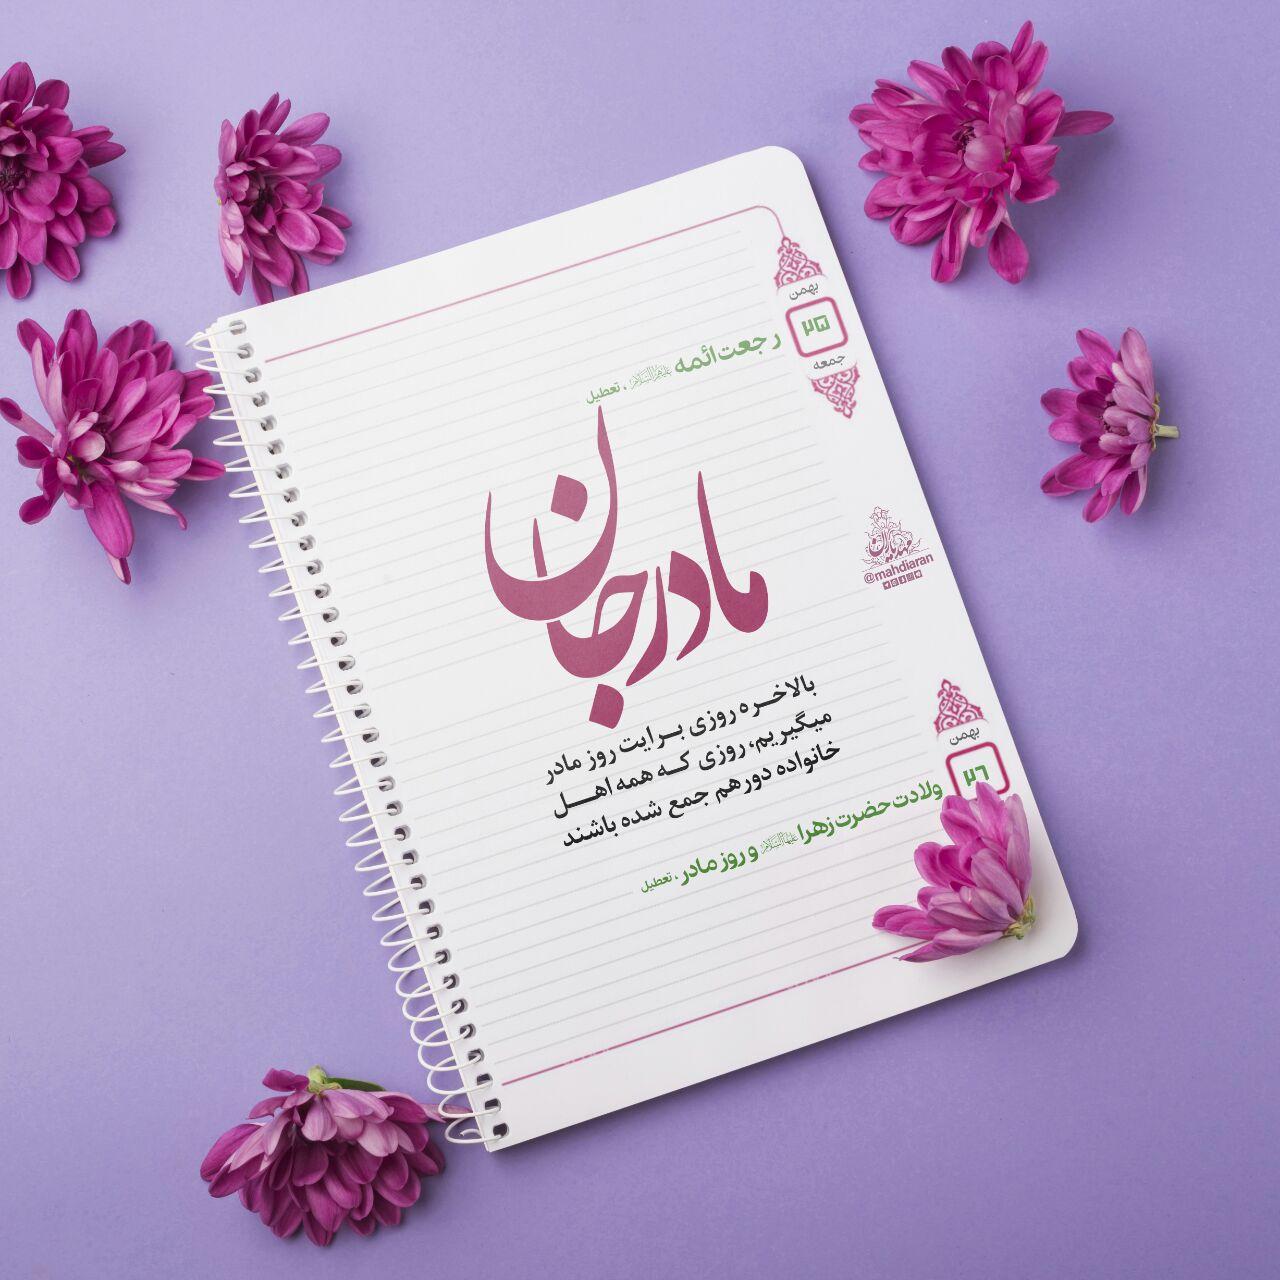 بهمن
۲۵
جمعه
رجعت ائمه علیهم‌السلام ، تعطیل
مادر جان
بالاخره روزی برایت روز مادر
میگیریم، روزی که همه اهل
خانواده دور هم جمع شده باشند
مهدیاران
@mahdiaran
بهمن
۲۶
ولادت حضرت زهرا علیهاالسلام و روز مادر ، تعطیل